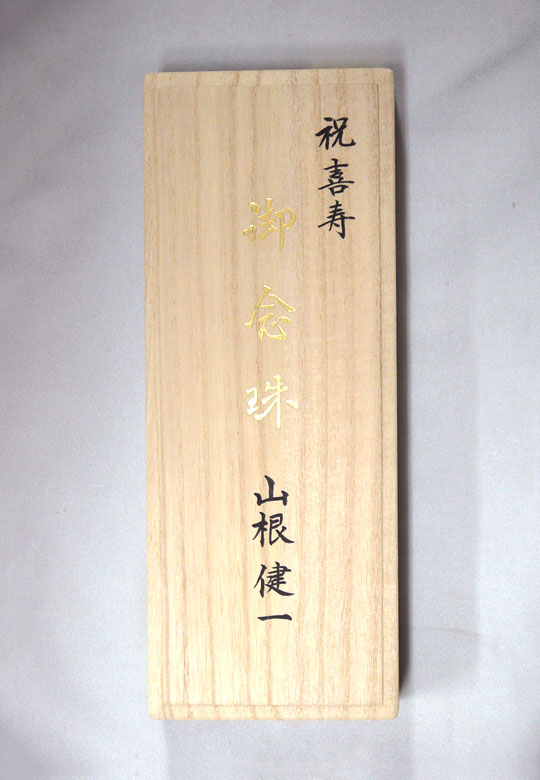 祝喜寿
御念珠
山根健一